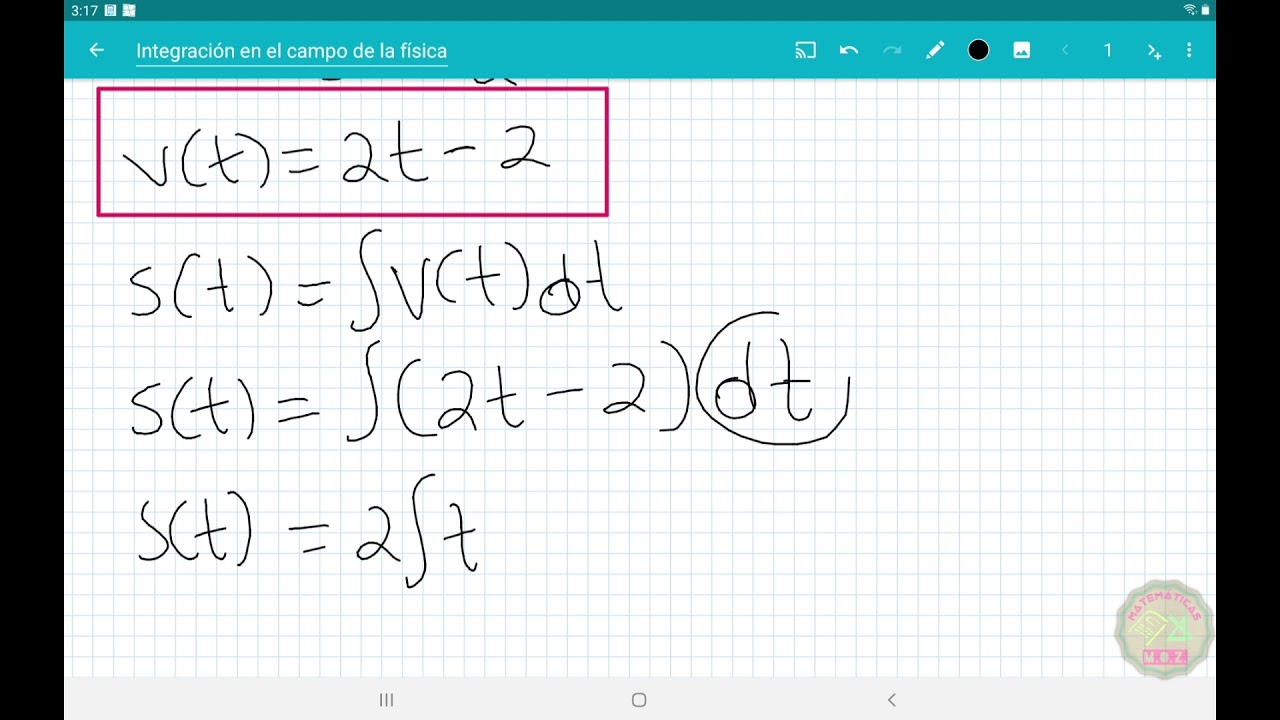 3:17
Integración en el campo de la física
1
v(t) = 2t - 2
s(t) = ∫v(t)dt
s(t) = ∫(2t - 2)dt
s(t) = 2∫t
MATEMÁTICAS
M.O.Z.